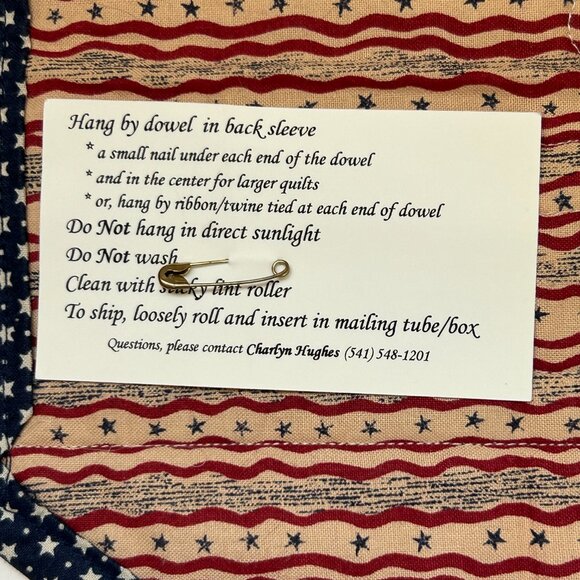 Hang by dowel in back sleeve
* a small nail under each end of the dowel
* and in the center for larger quilts
* or, hang by ribbon/twine tied at each end of dowel
Do Not hang in direct sunlight
Do Not wash
Clean with sticky lint roller
To ship, loosely roll and insert in mailing tube/box
Questions, please contact Charlyn Hughes (541) 548-1201